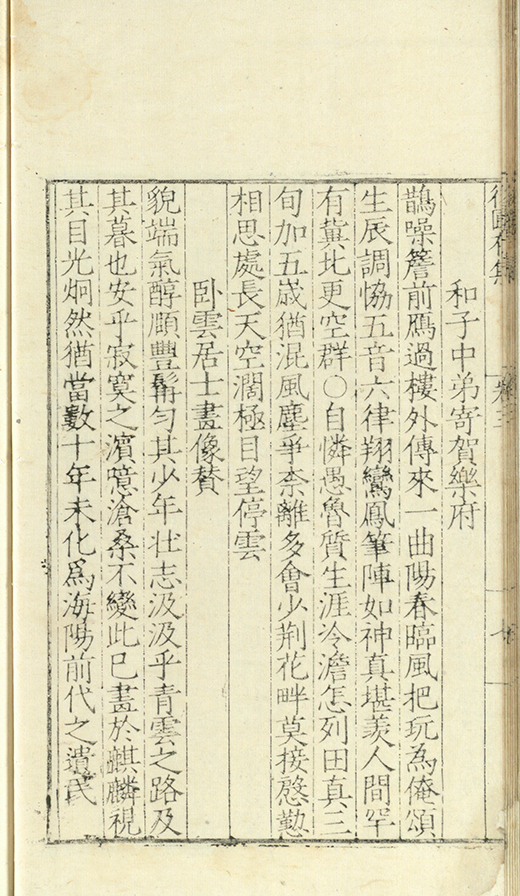 卷三
和子中弟寄賀樂府
鵲噪簷前鴈過樓外傳來一曲陽春臨風把玩為俺頌
生辰調恊五音六律翔鸞鳳筆陣如神真堪羨人間罕
有冀北更空群〇自憐愚魯質生涯冷澹怎列田真三
旬加五歲猶混風塵爭奈離多會少荆花畔莫接慇懃
相思處長天空濶極目望停雲
卧雲居士畫像賛
貌端氣醇頤豐鬚匀其少年壮志汲汲乎青雲之路及
其暮也安乎寂寞之濵噫滄桑不變此已畫於麒麟視
其目光炯然猶當數十年未化爲海陽前代之遺民